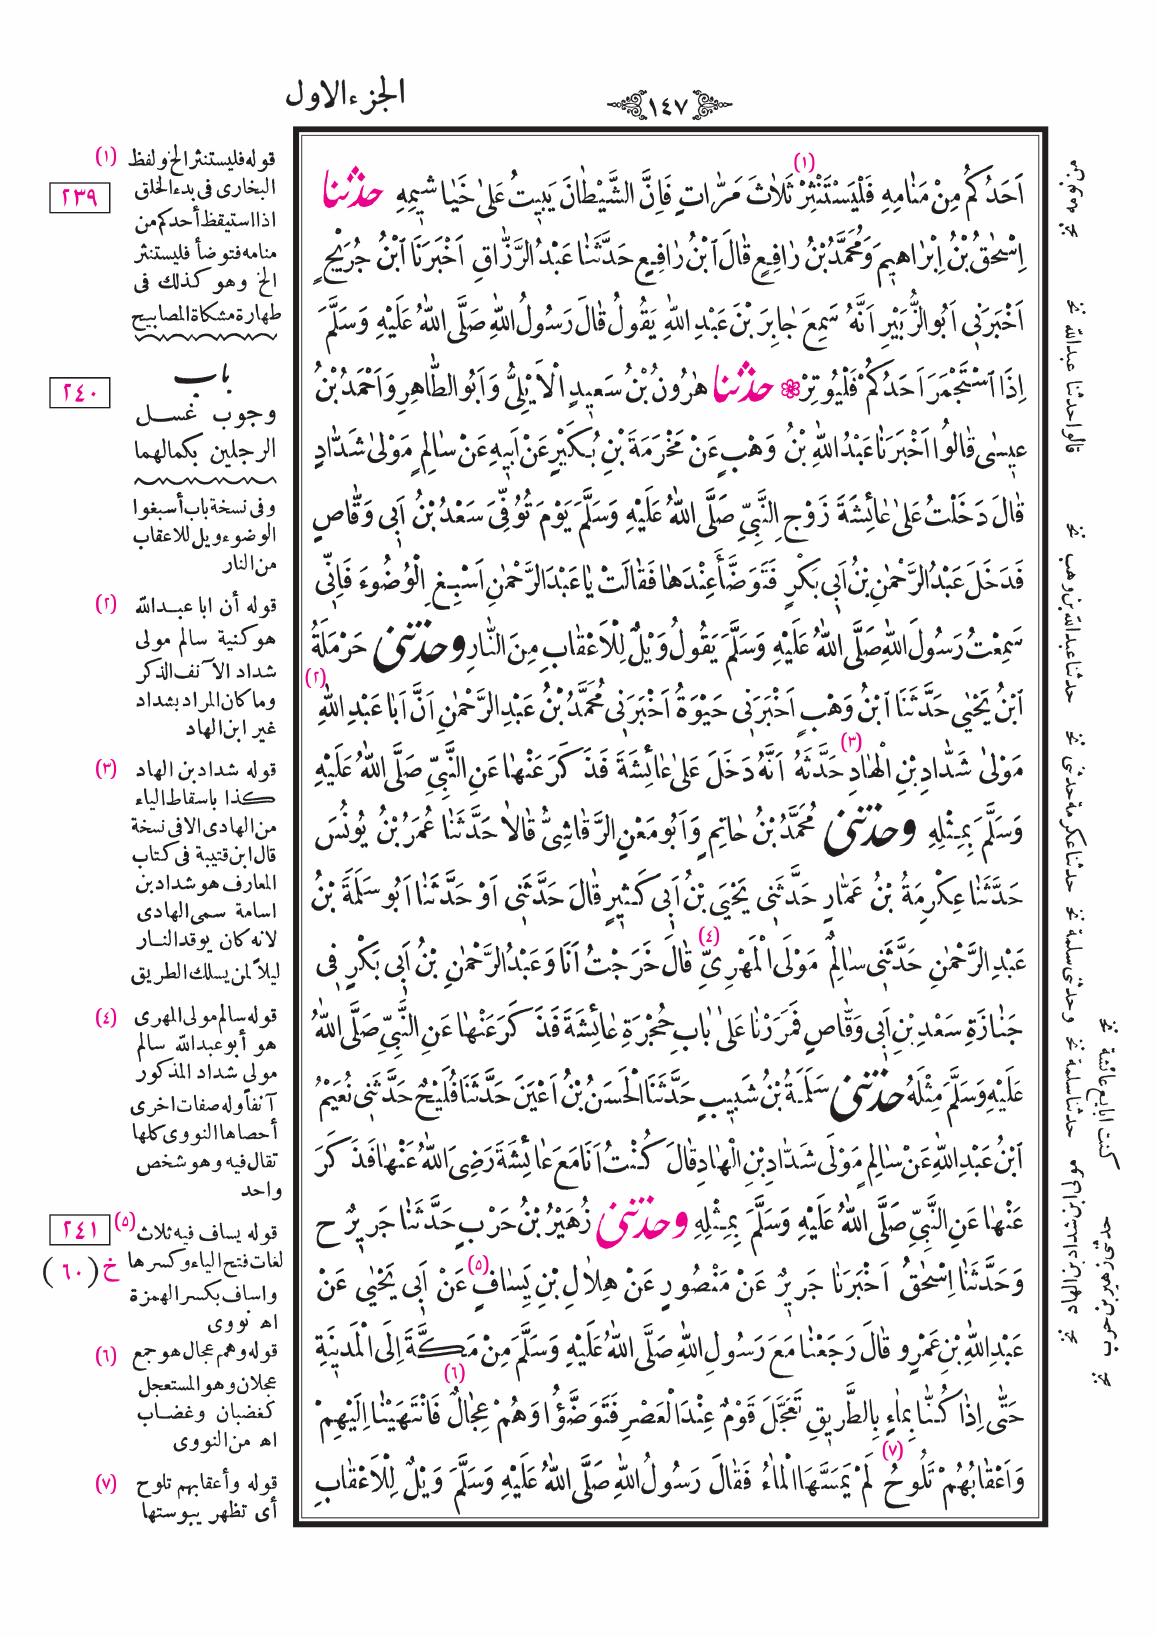 الجزء الاول
١٤٧
اَحَدُكُمْ مِنْ مَنَامِهِ فَلْيَسْتَنْثِرْ (١) ثَلَاثَ مَرَّاتٍ فَاِنَّ الشَّيْطَانَ يَبِيتُ عَلَى خَيَاشِيمِهِ حَدَّثَنَا
اِسْحٰقُ بْنُ اِبْرَاهِيمَ وَمُحَمَّدُ بْنُ رَافِعٍ قَالَ ابْنُ رَافِعٍ حَدَّثَنَا عَبْدُ الرَّزَّاقِ اَخْبَرَنَا ابْنُ جُرَيْجٍ
اَخْبَرَنِى اَبُو الزُّبَيْرِ اَنَّهُ سَمِعَ جَابِرَ بْنَ عَبْدِ اللّٰهِ يَقُولُ قَالَ رَسُولُ اللّٰهِ صَلَّى اللّٰهُ عَلَيْهِ وَسَلَّمَ
اِذَا اسْتَجْمَرَ اَحَدُكُمْ فَلْيُوتِرْ ❁ حَدَّثَنَا هٰرُونُ بْنُ سَعِيدٍ الْاَيْلِىُّ وَاَبُو الطَّاهِرِ وَاَحْمَدُ بْنُ
عِيسٰى قَالُوا اَخْبَرَنَا عَبْدُ اللّٰهِ بْنُ وَهْبٍ عَنْ مَخْرَمَةَ بْنِ بُكَيْرٍ عَنْ اَبِيهِ عَنْ سَالِمٍ مَوْلٰى شَدَّادٍ
قَالَ دَخَلْتُ عَلٰى عَائِشَةَ زَوْجِ النَّبِىِّ صَلَّى اللّٰهُ عَلَيْهِ وَسَلَّمَ يَوْمَ تُوُفِّىَ سَعْدُ بْنُ اَبِى وَقَّاصٍ
فَدَخَلَ عَبْدُ الرَّحْمٰنِ بْنُ اَبِى بَكْرٍ فَتَوَضَّأَ عِنْدَهَا فَقَالَتْ يَا عَبْدَ الرَّحْمٰنِ اَسْبِغِ الْوُضُوءَ فَاِنِّى
سَمِعْتُ رَسُولَ اللّٰهِ صَلَّى اللّٰهُ عَلَيْهِ وَسَلَّمَ يَقُولُ وَيْلٌ لِلْاَعْقَابِ مِنَ النَّارِ وَحَدَّثَنِى حَرْمَلَةُ
ابْنُ يَحْيٰى حَدَّثَنَا ابْنُ وَهْبٍ اَخْبَرَنِى حَيْوَةُ اَخْبَرَنِى مُحَمَّدُ بْنُ عَبْدِ الرَّحْمٰنِ اَنَّ اَبَا عَبْدِ اللّٰهِ (٢)
مَوْلٰى شَدَّادِ بْنِ الْهَادِ (٣) حَدَّثَهُ اَنَّهُ دَخَلَ عَلٰى عَائِشَةَ فَذَكَرَ عَنْهَا عَنِ النَّبِىِّ صَلَّى اللّٰهُ عَلَيْهِ
وَسَلَّمَ بِمِثْلِهِ وَحَدَّثَنِى مُحَمَّدُ بْنُ حَاتِمٍ وَاَبُو مَعْنٍ الرَّقَاشِىُّ قَالَا حَدَّثَنَا عُمَرُ بْنُ يُونُسَ
حَدَّثَنَا عِكْرِمَةُ بْنُ عَمَّارٍ حَدَّثَنِى يَحْيَى بْنُ اَبِى كَثِيرٍ قَالَ حَدَّثَنِى اَوْ حَدَّثَنَا اَبُو سَلَمَةَ بْنُ
عَبْدِ الرَّحْمٰنِ حَدَّثَنِى سَالِمٌ مَوْلَى الْمَهْرِىِّ (٤) قَالَ خَرَجْتُ اَنَا وَعَبْدُ الرَّحْمٰنِ بْنُ اَبِى بَكْرٍ فِى
جَنَازَةِ سَعْدِ بْنِ اَبِى وَقَّاصٍ فَمَرَرْنَا عَلٰى بَابِ حُجْرَةِ عَائِشَةَ فَذَكَرَ عَنْهَا عَنِ النَّبِىِّ صَلَّى اللّٰهُ
عَلَيْهِ وَسَلَّمَ مِثْلَهُ حَدَّثَنِى سَلَمَةُ بْنُ شَبِيبٍ حَدَّثَنَا الْحَسَنُ بْنُ اَعْيَنَ حَدَّثَنَا فُلَيْحٌ حَدَّثَنِى نُعَيْمُ
ابْنُ عَبْدِ اللّٰهِ عَنْ سَالِمٍ مَوْلَى شَدَّادِ بْنِ الْهَادِ قَالَ كُنْتُ اَنَا مَعَ عَائِشَةَ رَضِىَ اللّٰهُ عَنْهَا فَذَكَرَ
عَنْهَا عَنِ النَّبِىِّ صَلَّى اللّٰهُ عَلَيْهِ وَسَلَّمَ بِمِثْلِهِ وَحَدَّثَنِى زُهَيْرُ بْنُ حَرْبٍ حَدَّثَنَا جَرِيرٌ ح
وَحَدَّثَنَا اِسْحٰقُ اَخْبَرَنَا جَرِيرٌ عَنْ مَنْصُورٍ عَنْ هِلَالِ بْنِ يَسَافٍ (٥) عَنْ اَبِى يَحْيٰى عَنْ
عَبْدِ اللّٰهِ بْنِ عَمْرٍو قَالَ رَجَعْنَا مَعَ رَسُولِ اللّٰهِ صَلَّى اللّٰهُ عَلَيْهِ وَسَلَّمَ مِنْ مَكَّةَ اِلَى الْمَدِينَةِ
حَتّٰى اِذَا كُنَّا بِمَاءٍ بِالطَّرِيقِ تَعَجَّلَ قَوْمٌ عِنْدَ الْعَصْرِ فَتَوَضَّؤُا وَهُمْ عِجَالٌ (٦) فَانْتَهَيْنَا اِلَيْهِمْ
وَاَعْقَابُهُمْ تَلُوحُ (٧) لَمْ يَمَسَّهَا الْمَاءُ فَقَالَ رَسُولُ اللّٰهِ صَلَّى اللّٰهُ عَلَيْهِ وَسَلَّمَ وَيْلٌ لِلْاَعْقَابِ
(١) قوله فليستنثر الخ ولفظ
٢٣٩
البخارى فى بدء الخلق
اذا استيقظ أحدكم من
منامه فتوضأ فليستنثر
الخ وهو كذلك فى
طهارة مشكاة المصابيح
باب
٢٤٠
وجوب غسل
الرجلين بكمالهما
وفى نسخة باب أسبغوا
الوضوء ويل للاعقاب
من النار
(٢) قوله أن ابا عبدالله
هو كنية سالم مولى
شداد الآنف الذكر
وما كان المراد بشداد
غير ابن الهاد
(٣) قوله شداد بن الهاد
كذا باسقاط الياء
من الهادى الا فى نسخة
قال ابن قتيبة فى كتاب
المعارف هو شداد بن
اسامة سمى الهادى
لانه كان يوقد النار
ليلاً لمن يسلك الطريق
(٤) قوله سالم مولى المهرى
هو أبو عبدالله سالم
مولى شداد المذكور
آنفاً وله صفات اخرى
أحصاها النووى كلها
تقال فيه وهو شخص
واحد
٢٤١
(٥) قوله يساف فيه ثلاث
خ (٦٠)
لغات فتح الياء وكسرها
واساف بكسر الهمزة
اه نووى
(٦) قوله وهم عجال هو جمع
عجلان وهو المستعجل
كغضبان وغضاب
اه من النووى
(٧) قوله وأعقابهم تلوح
أى تظهر يبوستها
قالوا حدثنا عبدالله نخ
حدثنا عبدالله بن وهب نخ
حدثنا عكرمة حدثنى نخ
وحدثنى سلمة نخ
حدثنا سلمة نخ
كنت ابايع عائشة نخ
حدثنى زهير بن حرب نخ